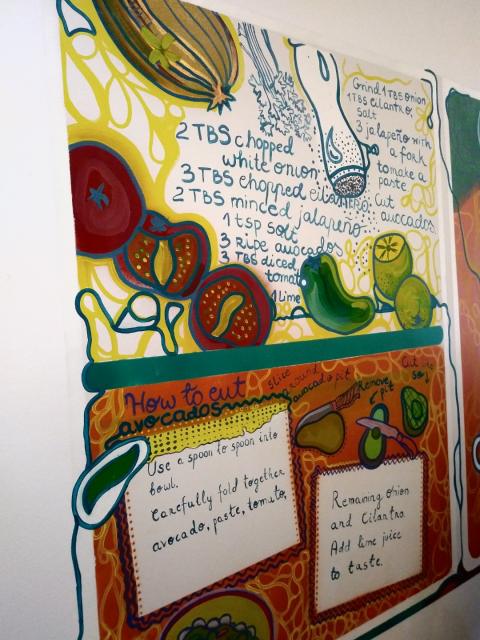 Grind 1 TBS onion
1 TBS cilantro,
salt
3 jalapeño with
a fork,
to make a
paste.
Cut
avocados
2 TBS chopped
white onion
3 TBS chopped cilantro
2 TBS minced jalapeño
1 tsp salt
3 Ripe avocados
3 TBS diced
tomato
1 Lime
How to cut
avocados
slice
around
avocado pit
Remove
pit
Cut into
Use a spoon to spoon into
bowl.
Carefully fold together
avocado, paste, tomato,
Remaining Onion
and Cilantro.
Add lime juice
to taste.